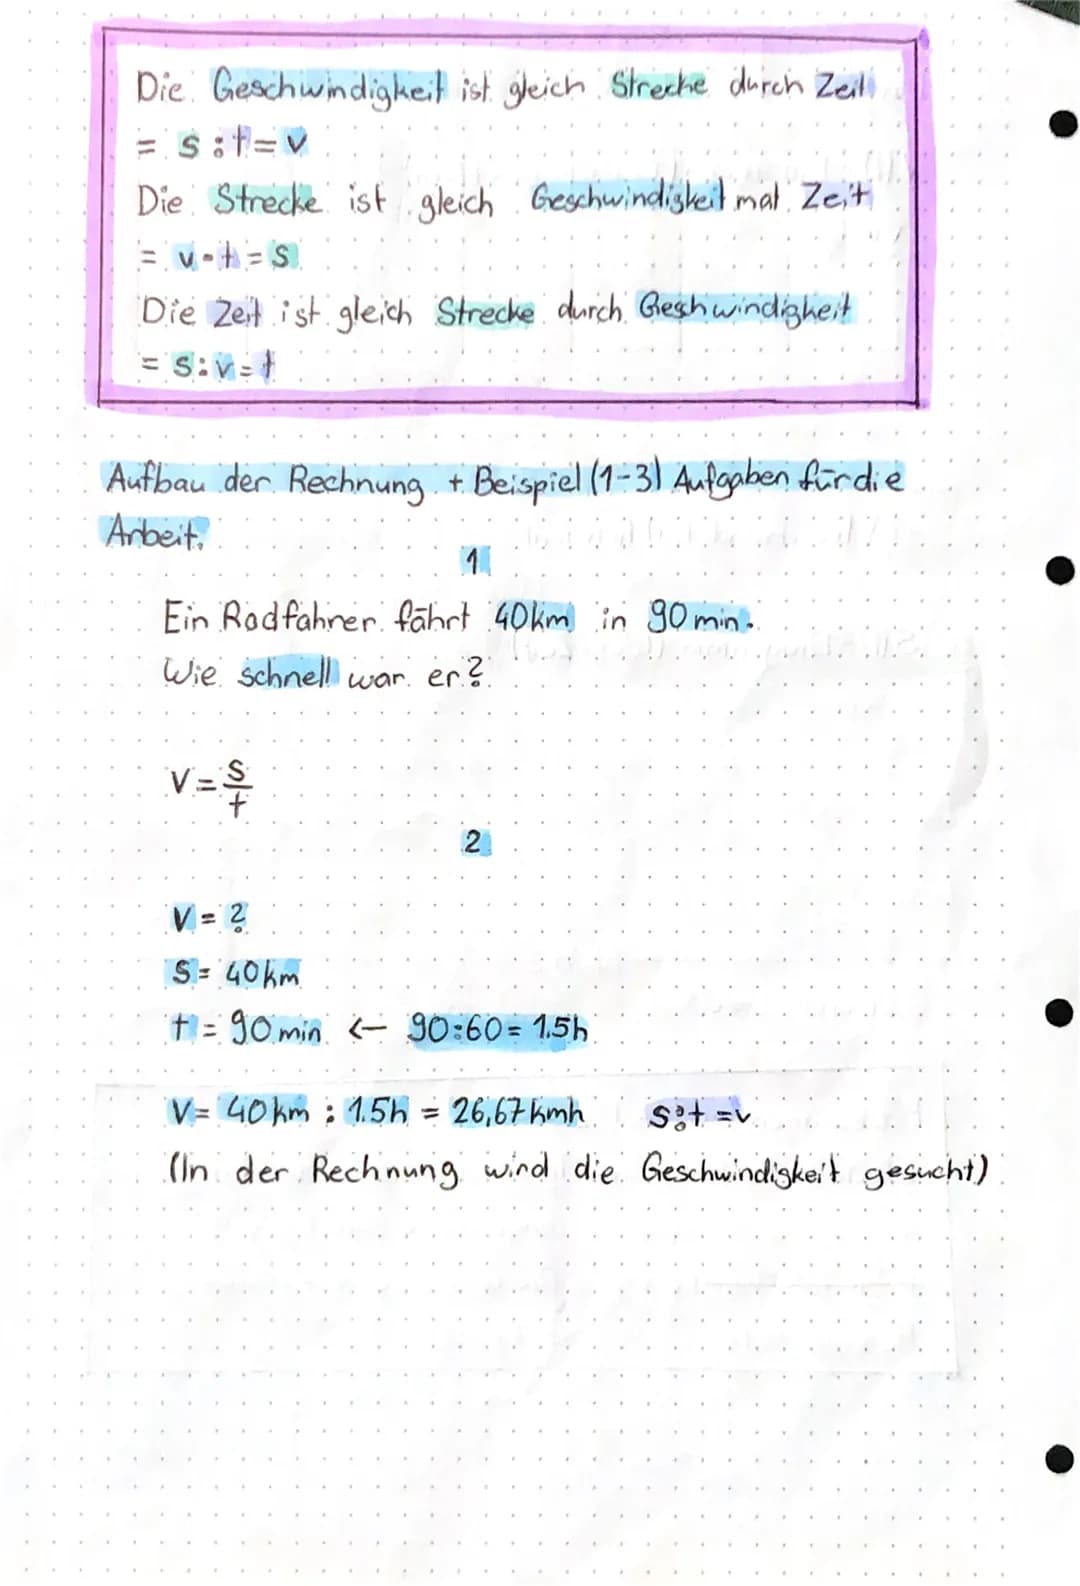 Die Geschwindigkeit ist gleich Strecke durch Zeit
= s : t = v
Die Strecke ist gleich Geschwindigkeit mal Zeit
= v • t = s
Die Zeit ist gleich Strecke durch Geschwindigkeit
= s : v = t
Aufbau der Rechnung + Beispiel (1-3) Aufgaben für die
Arbeit.
1
Ein Radfahrer fährt 40km in 90 min.
Wie schnell war er?
V = s/t
2
V = ?
S = 40km
t = 90 min ← 90:60 = 1.5h
V = 40km : 1.5h = 26,67 kmh s:t = v
(In der Rechnung wird die Geschwindigkeit gesucht)